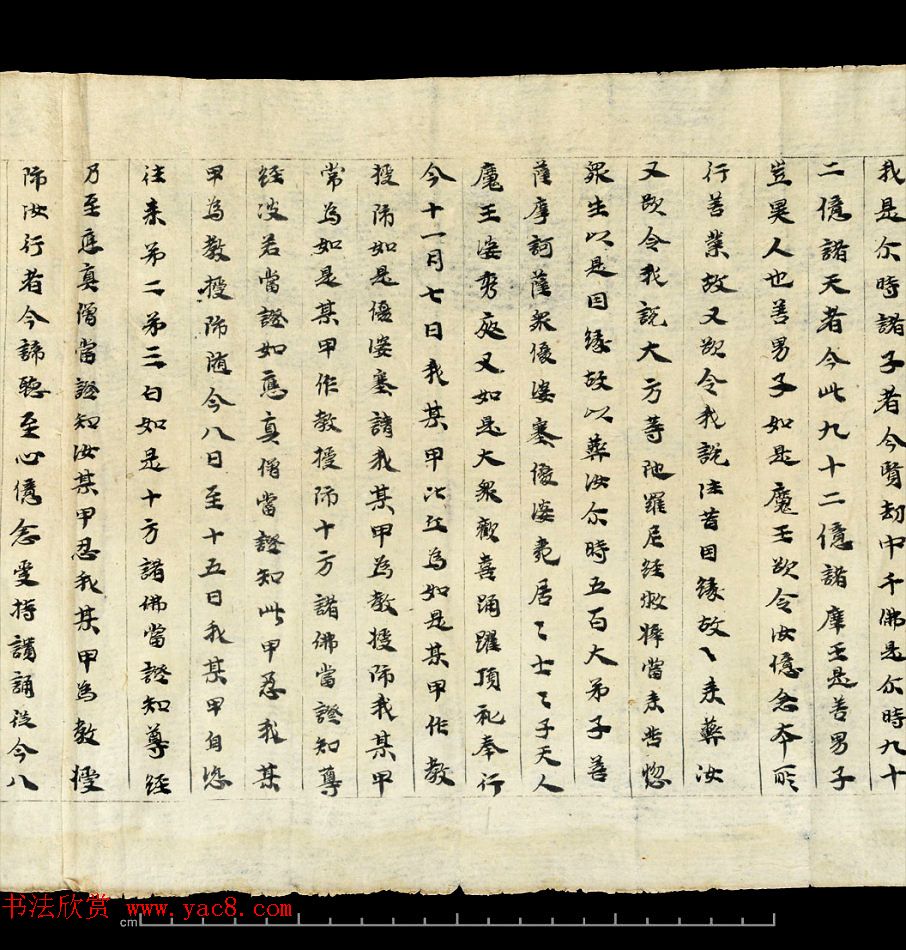 我是尒時諸子者今賢劫中千佛是尒時九十
二億諸天者今此九十二億諸摩王是善男子
豈異人也善男子如是魔王欲令汝憶念本所
行善業故又欲令我說往昔因緣故〻来弊汝
又欲令我說大方等陁羅尼經救將當来世惚
衆生以是因緣故以弊汝尒時五百大弟子善
薩摩訶薩衆優婆塞優婆夷居〻士〻子天人
魔王婆藪廋又如是大衆歡喜踊躍頂礼奉行
今十一月七日我某甲比丘為如是某甲作教
授師如是優婆塞請我某甲為教授師我某甲
常為如是某甲作教授師十方諸佛當證知尊
經波若當證如應真僧當證知此甲忍我某
甲為教授師随今八日至十五日我某甲自恣
往来第二第三白如是十方諸佛當證知尊經
乃至應真僧當證知汝某甲忍我某甲為教授
師汝行者今諦聽至心憶念受持讀誦從今八
书法欣赏 www.yac8.com
cm